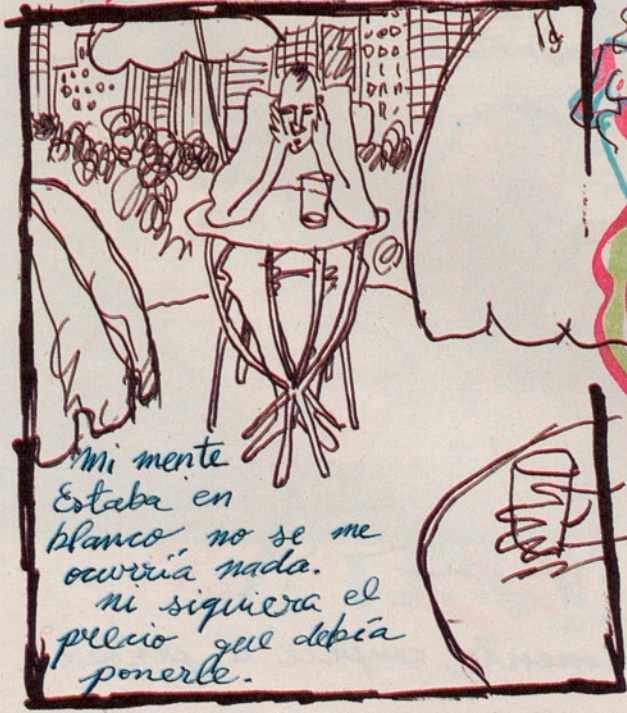 mi mente
Estaba en
blanco, no se me
ocurría nada.
ni siquiera el
precio que debía
ponerle.